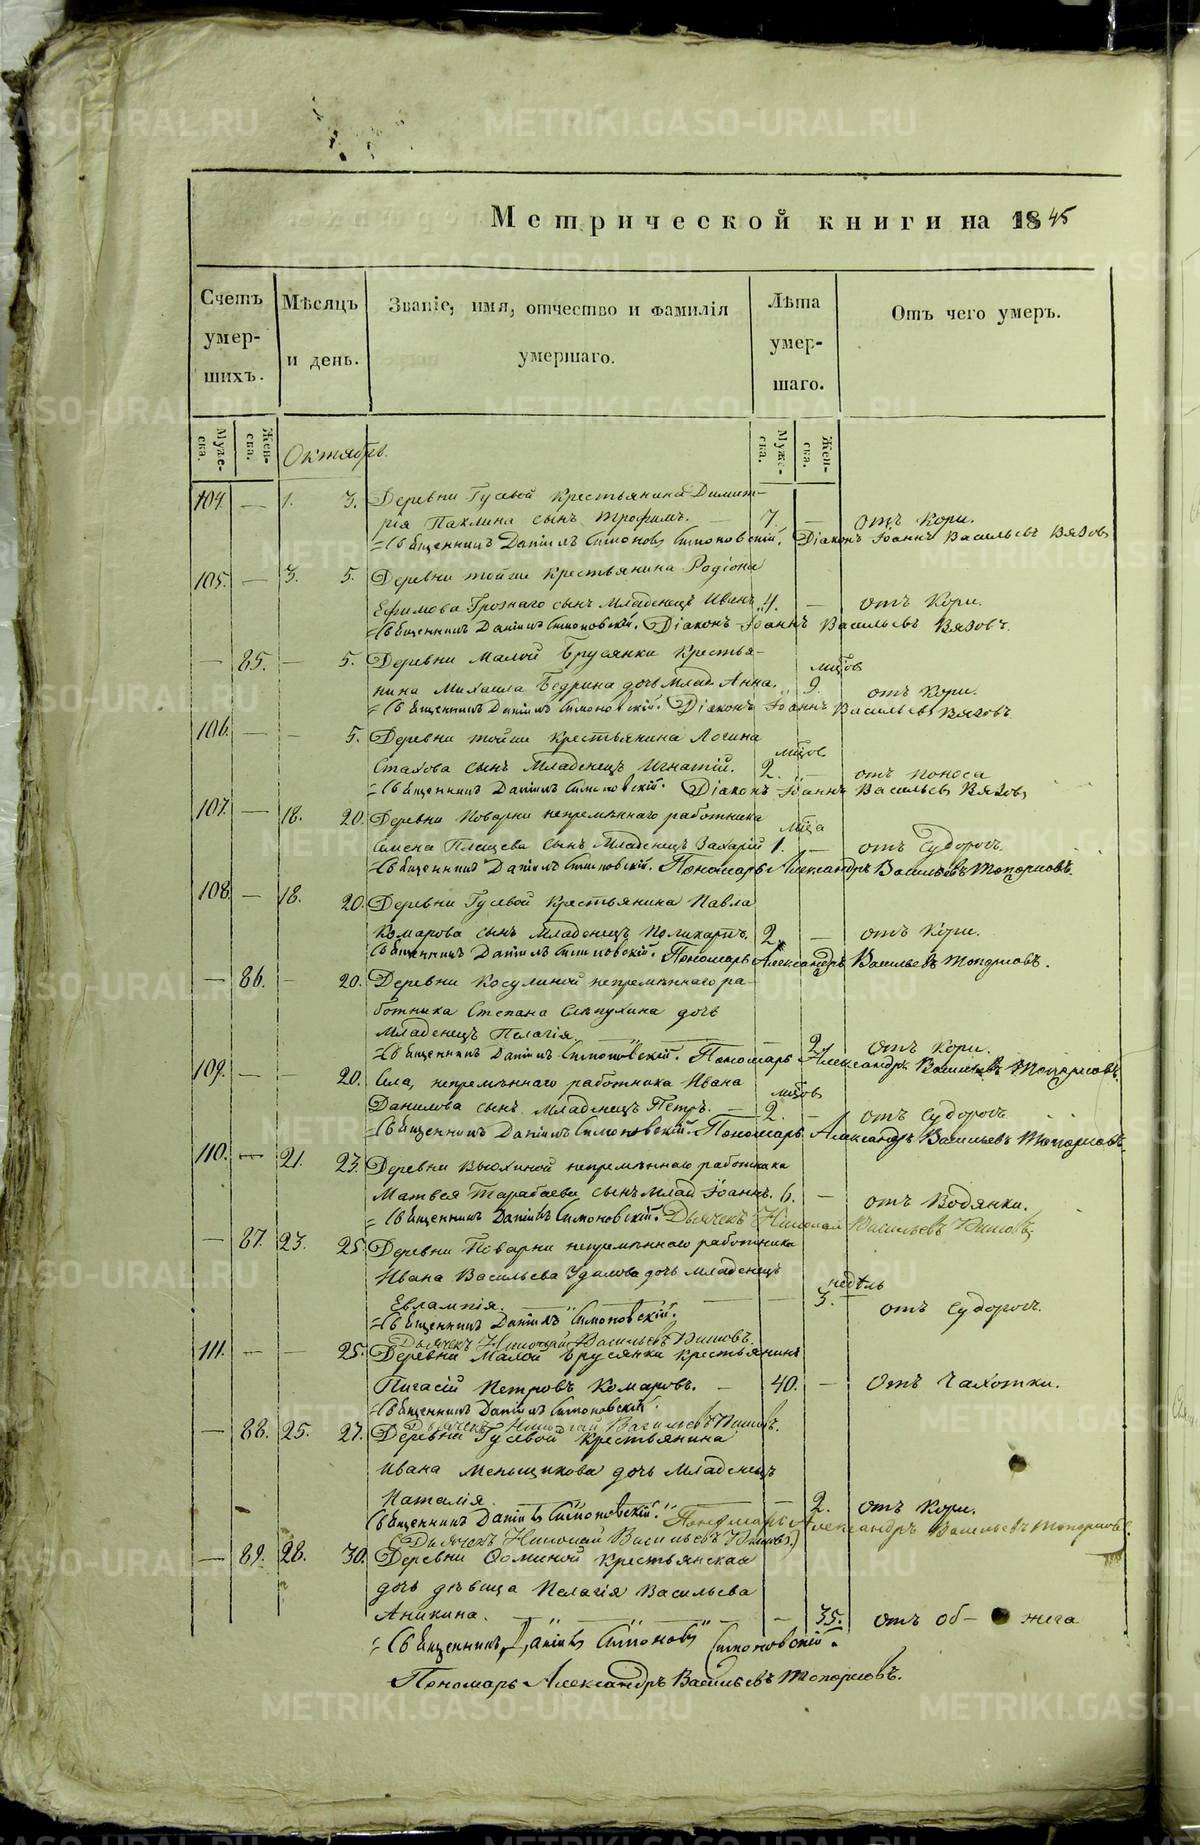 Метрической книги на 1845
Счетъ умер- шихъ.
Мѣсяцъ и день.
Званіе, имя, отчество и фамилія умершаго.
Лѣта умер- шаго.
Отъ чего умеръ.
Муже- ска.
Жен- ска.
Октябрь.
Муже- ска.
Жен- ска.
104. — 1. 3. Деревни Гусевой крестьянина Димит-
рія Пахлина сынъ Трофимъ. — 7. — отъ Кори.
Священникъ Даніилъ Симоновъ Симоновскій. Діаконъ Іоаннъ Васильевъ Вязовъ
105. — 3. 5. Деревни тойже крестьянина Родіона
Ефимова Грознаго сынъ младенецъ Иванъ 4. — отъ Кори.
Священникъ Даніилъ Симоновскій. Діаконъ Іоаннъ Васильевъ Вязовъ.
— 85. — 5. Деревни Малой Брусянки крестья-
нина Михаила Бедрина дочь млад. Анна. 9 мцовъ отъ Кори.
Священникъ Даніилъ Симоновскій. Діаконъ Іоаннъ Васильевъ Вязовъ
106. — — 5. Деревни тойже крестьянина Логина
Стахова сынъ Младенецъ Игнатій. 2. мцовъ — отъ поноса
Священникъ Даніилъ Симоновскій. Діаконъ Іоаннъ Васильевъ Вязовъ
107. — 18. 20. Деревни Поварни непремѣннаго работника
Семена Плещева сынъ Младенецъ Захарій 1. мца — отъ Судорогъ.
Священникъ Даніилъ Симоновскій. Пономарь Александръ Васильевъ Топорковъ.
108. — 18. 20. Деревни Гусевой крестьянина Павла
Комарова сынъ Младенецъ Поликарпъ. 2. — отъ Кори.
Священникъ Даніилъ Симоновскій. Пономарь Александръ Васильевъ Топорковъ.
— 86. — 20. Деревни Косулиной непремѣннаго ра-
ботника Степана Слѣпухина дочь
Младенецъ Пелагія — — 2. отъ Кори.
Священникъ Даніилъ Симоновскій. Пономарь Александръ Васильевъ Топорковъ.
109. — — 20. Села, непремѣннаго работника Ивана
Данилова сынъ Младенецъ Петръ. — 2. мцовъ — отъ Судорогъ
Священникъ Даніилъ Симоновскій. Пономарь Александръ Васильевъ Топорковъ.
110. — 21. 23. Деревни Вьюхиной непремѣннаго работника
Матвея Тарабаева сынъ млад Іоаннъ. 6. — отъ Водянки.
Священникъ Даніилъ Симоновскій. Дьячекъ Николай Васильевъ
— 87. 23. 25. Деревни Поварни непремѣннаго работника
Ивана Васильева Удилова дочь младенецъ
Евлампія. — — 3. недѣль отъ Судорогъ.
Священникъ Даніилъ Симоновскій.
Дьячекъ Николай Васильевъ
111. — — 25. Деревни Малой Брусянки крестьянинъ
Пигасій Петровъ Комаровъ. — 40. — Отъ Чахотки.
Священникъ Даніилъ Симоновскій.
Дьячекъ Николай Васильевъ
— 88. 25. 27. Деревни Гусевой крестьянина
Ивана Меньщикова дочь Младенецъ
Наталія — — 2. отъ Кори.
Священникъ Даніилъ Симоновскій. Пономарь Александръ Васильевъ Топорковъ.
(Дьячекъ Николай Васильевъ
— 89. 28. 30. Деревни крестьянская
дочь дѣвица Пелагія Васильева
Аникина. — — 35. отъ об- жега
Священникъ Даніилъ Симоновъ Симоновскій.
Пономарь Александръ Васильевъ Топорковъ.